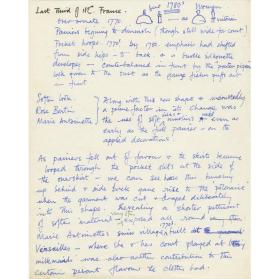 Last Third of 18C. France.
late 1780's younger
Over-ornate 1770.
Panniers begin to diminish (though still wide for court)
Pocket hoops 1770's by 1780 emphasis had shifted
from side hips - to back - & a bustle silhouette
developes - counterbalanced in front by the pouter pigeon
look given to the bust as the gauze fichu puffs out
in front.
Softer look.
Rose Bertin
Marie Antoinette
Along with this new shape - undoubtedly
a prime factor in its change, was
the use of soft muslins - even as
early as the full pannier - on the
applied decorations.
As panniers fell out of favour & the skirts became
looped through the pocket slits at the side of
the overskirt - we can see how this bunching
up behind & side back gave rise to the polonaise
when the garment was cut & draped deliberately
into this shape. Revealing a shorter petticoat
of softer material - exposed all round
Marie Antoinettes swiss village built at
Versailles - where she & her court played at
milkmaids was also contribution to this
certain peasant flavour the clothes had -